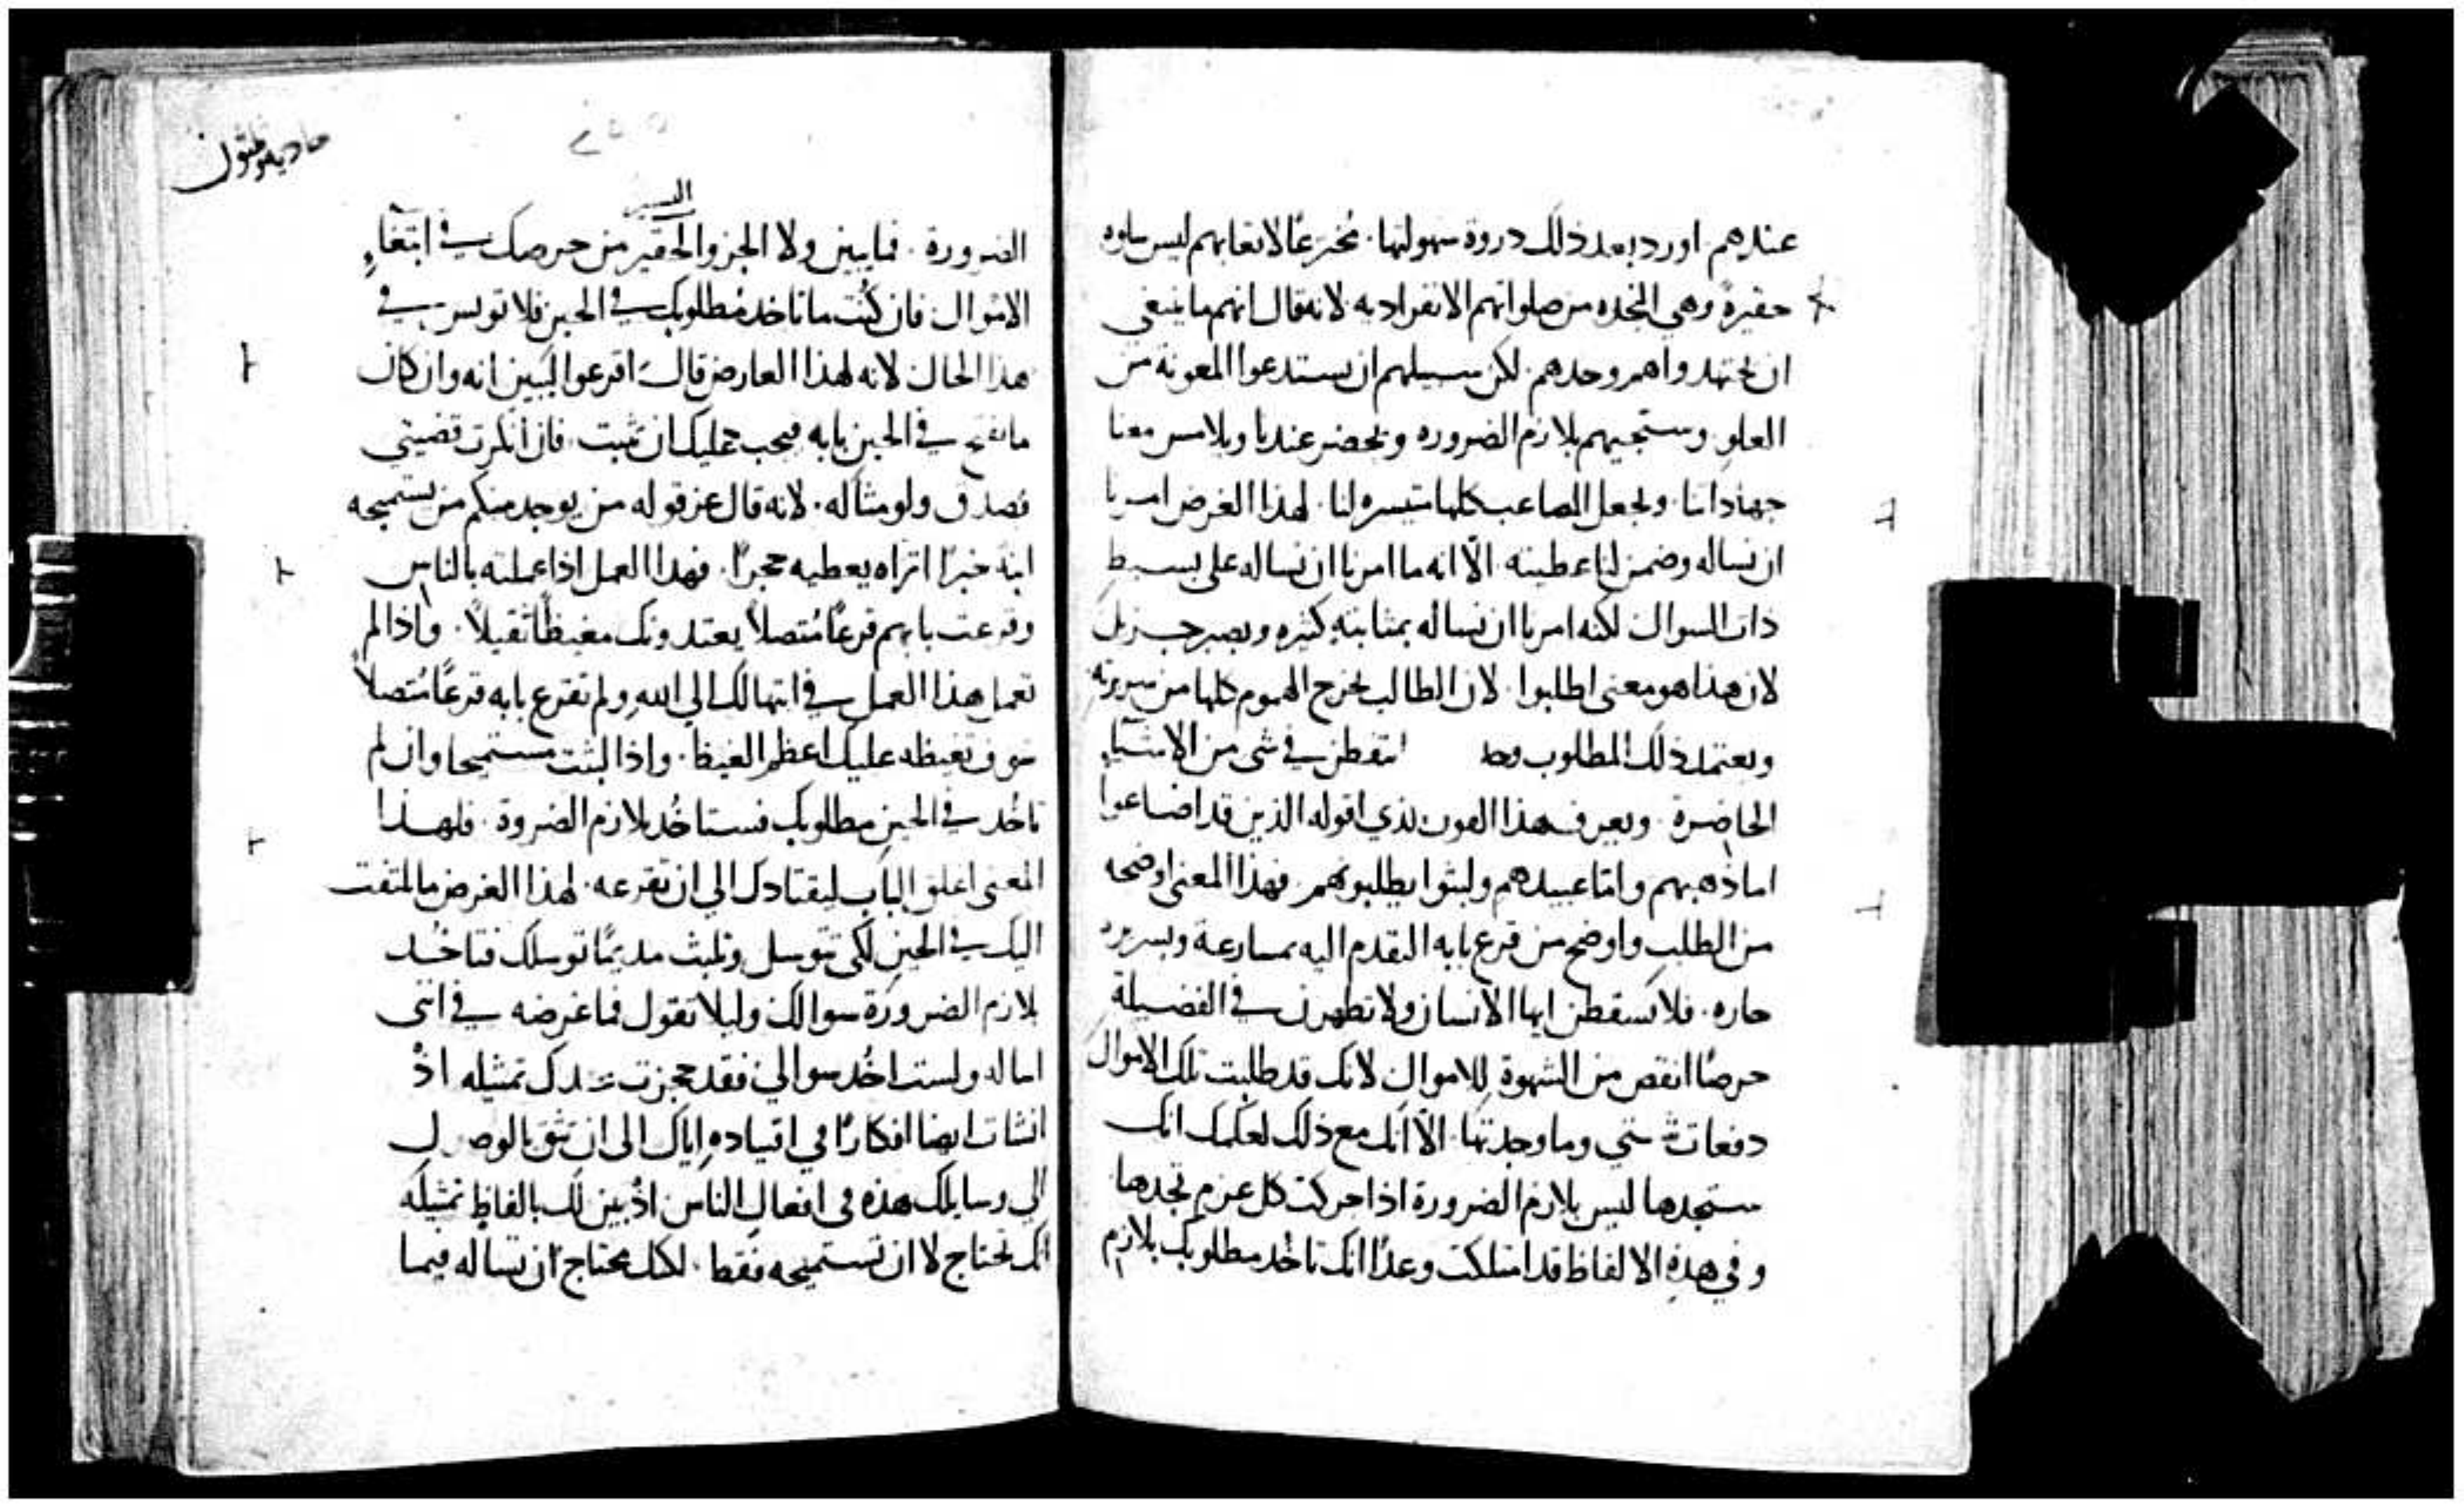 عندهم اورد بعد ذلك دروة سهولتها. مخترعًا لاتعابهم ليس سلوه
حقيرة وهي المنحده من صلواتهم الانفراديه لانه قال انهم ما ينبغي
ان يجتهدوا هم وحدهم. لكن سبيلهم ان يستدعوا المعونة من
العلو. وستجيهم بلازم الضروره وتحضر عندنا ويلامس معنا
جهاداتنا. ويجعل المصاعب كلها متيسره لنا. لهذا الغرض امرنا
ان نساله وضمن لنا عطيته الّا انه ما امرنا ان نساله على بسيط
ذات السوال لكنه امرنا ان نساله بمثابته كثيره وبصبر جزيل
لان هذا هو معنى اطلبوا. لان الطالب يخرج الهموم كلها من سريرته
ويعتمد ذلك المطلوب وحد ا يتفطن في شي من الاشيآء
الحاضرة. ويعرف هذا القول لذي اقوله الذين قد اضاعوا
اما ذهبهم واما عبيدهم ولبثوا يطلبونهم. فهذا المعنى اوضحه
من الطلب واوضح من قرع بابه التقدم اليه بمسارعة وبسريره
حاره. فلا تسقطن ايها الانسان ولا تظهرن في الفضيلة
حرصًا انقص من الشهوة للاموال لانك قد طلبت تلك الاموال
دفعات شتي وما وجدتها. الّا انك مع ذلك لعلمك انك
ستجدها ليس بلازم الضرورة اذا حركت كل عزم تجدها.
وفي هذه الالفاظ قد امتلكت وعدًا انك تاخذ مطلوبك بلازم
اليسير
الضرورة. فما يبين ولا الجزو الحقير من حرصك في ابتغاء
الاموال فان كنت ما تاخد مطلوبك في الحين فلا تويس في
هذا الحال لانه لهذا العارض قال اقرعوا ليبين انه وان كان
ما يفتح في الحين بابه فيجب عليك ان تثبت. فان انكرت قضيتي
فصدق ولو مثاله. لانه قال عن قوله من يوجد منكم من يستميحه
ابنه خبزًا اتراه يعطيه حجرًا. فهذا العمل اذا عملته بالناس
وقرعت بابهم قرعًا متصلاً يعتدونك مغيظًا ثقيلاً. واذا لم
تعمل هذا العمل في ابتهالك الي الله ولم تقرع بابه قرعًا متصلاً
سوف تغيظه عليك اعظم الغيظ. واذا لبثت مستميحا وان لم
تاخد في الحين مطلوبك فستاخد بلازم الضروة. فلهذا
المعنى اغلق الباب ليقتادك الي ان تقرعه. لهذا الغرض ما التفت
اليك في الحين لكي تتوسل وتلبث مديمًا توسلك فتاخد
بلازم الضرورة سوالك وليلا تقول فما غرضه في انني
اساله ولست اخد سوالي فقد حجزت عندك تمثيله اذ
انشات ايضا افكارًا في اقتياده اياك الى ان تثق بالوصول
الي وسايلك هذه في افعال الناس اذ يبين لك بالفاظ تمثيله
انك تحتاج لا ان تستميحه فقط. لكنك محتاج ان تساله فيما